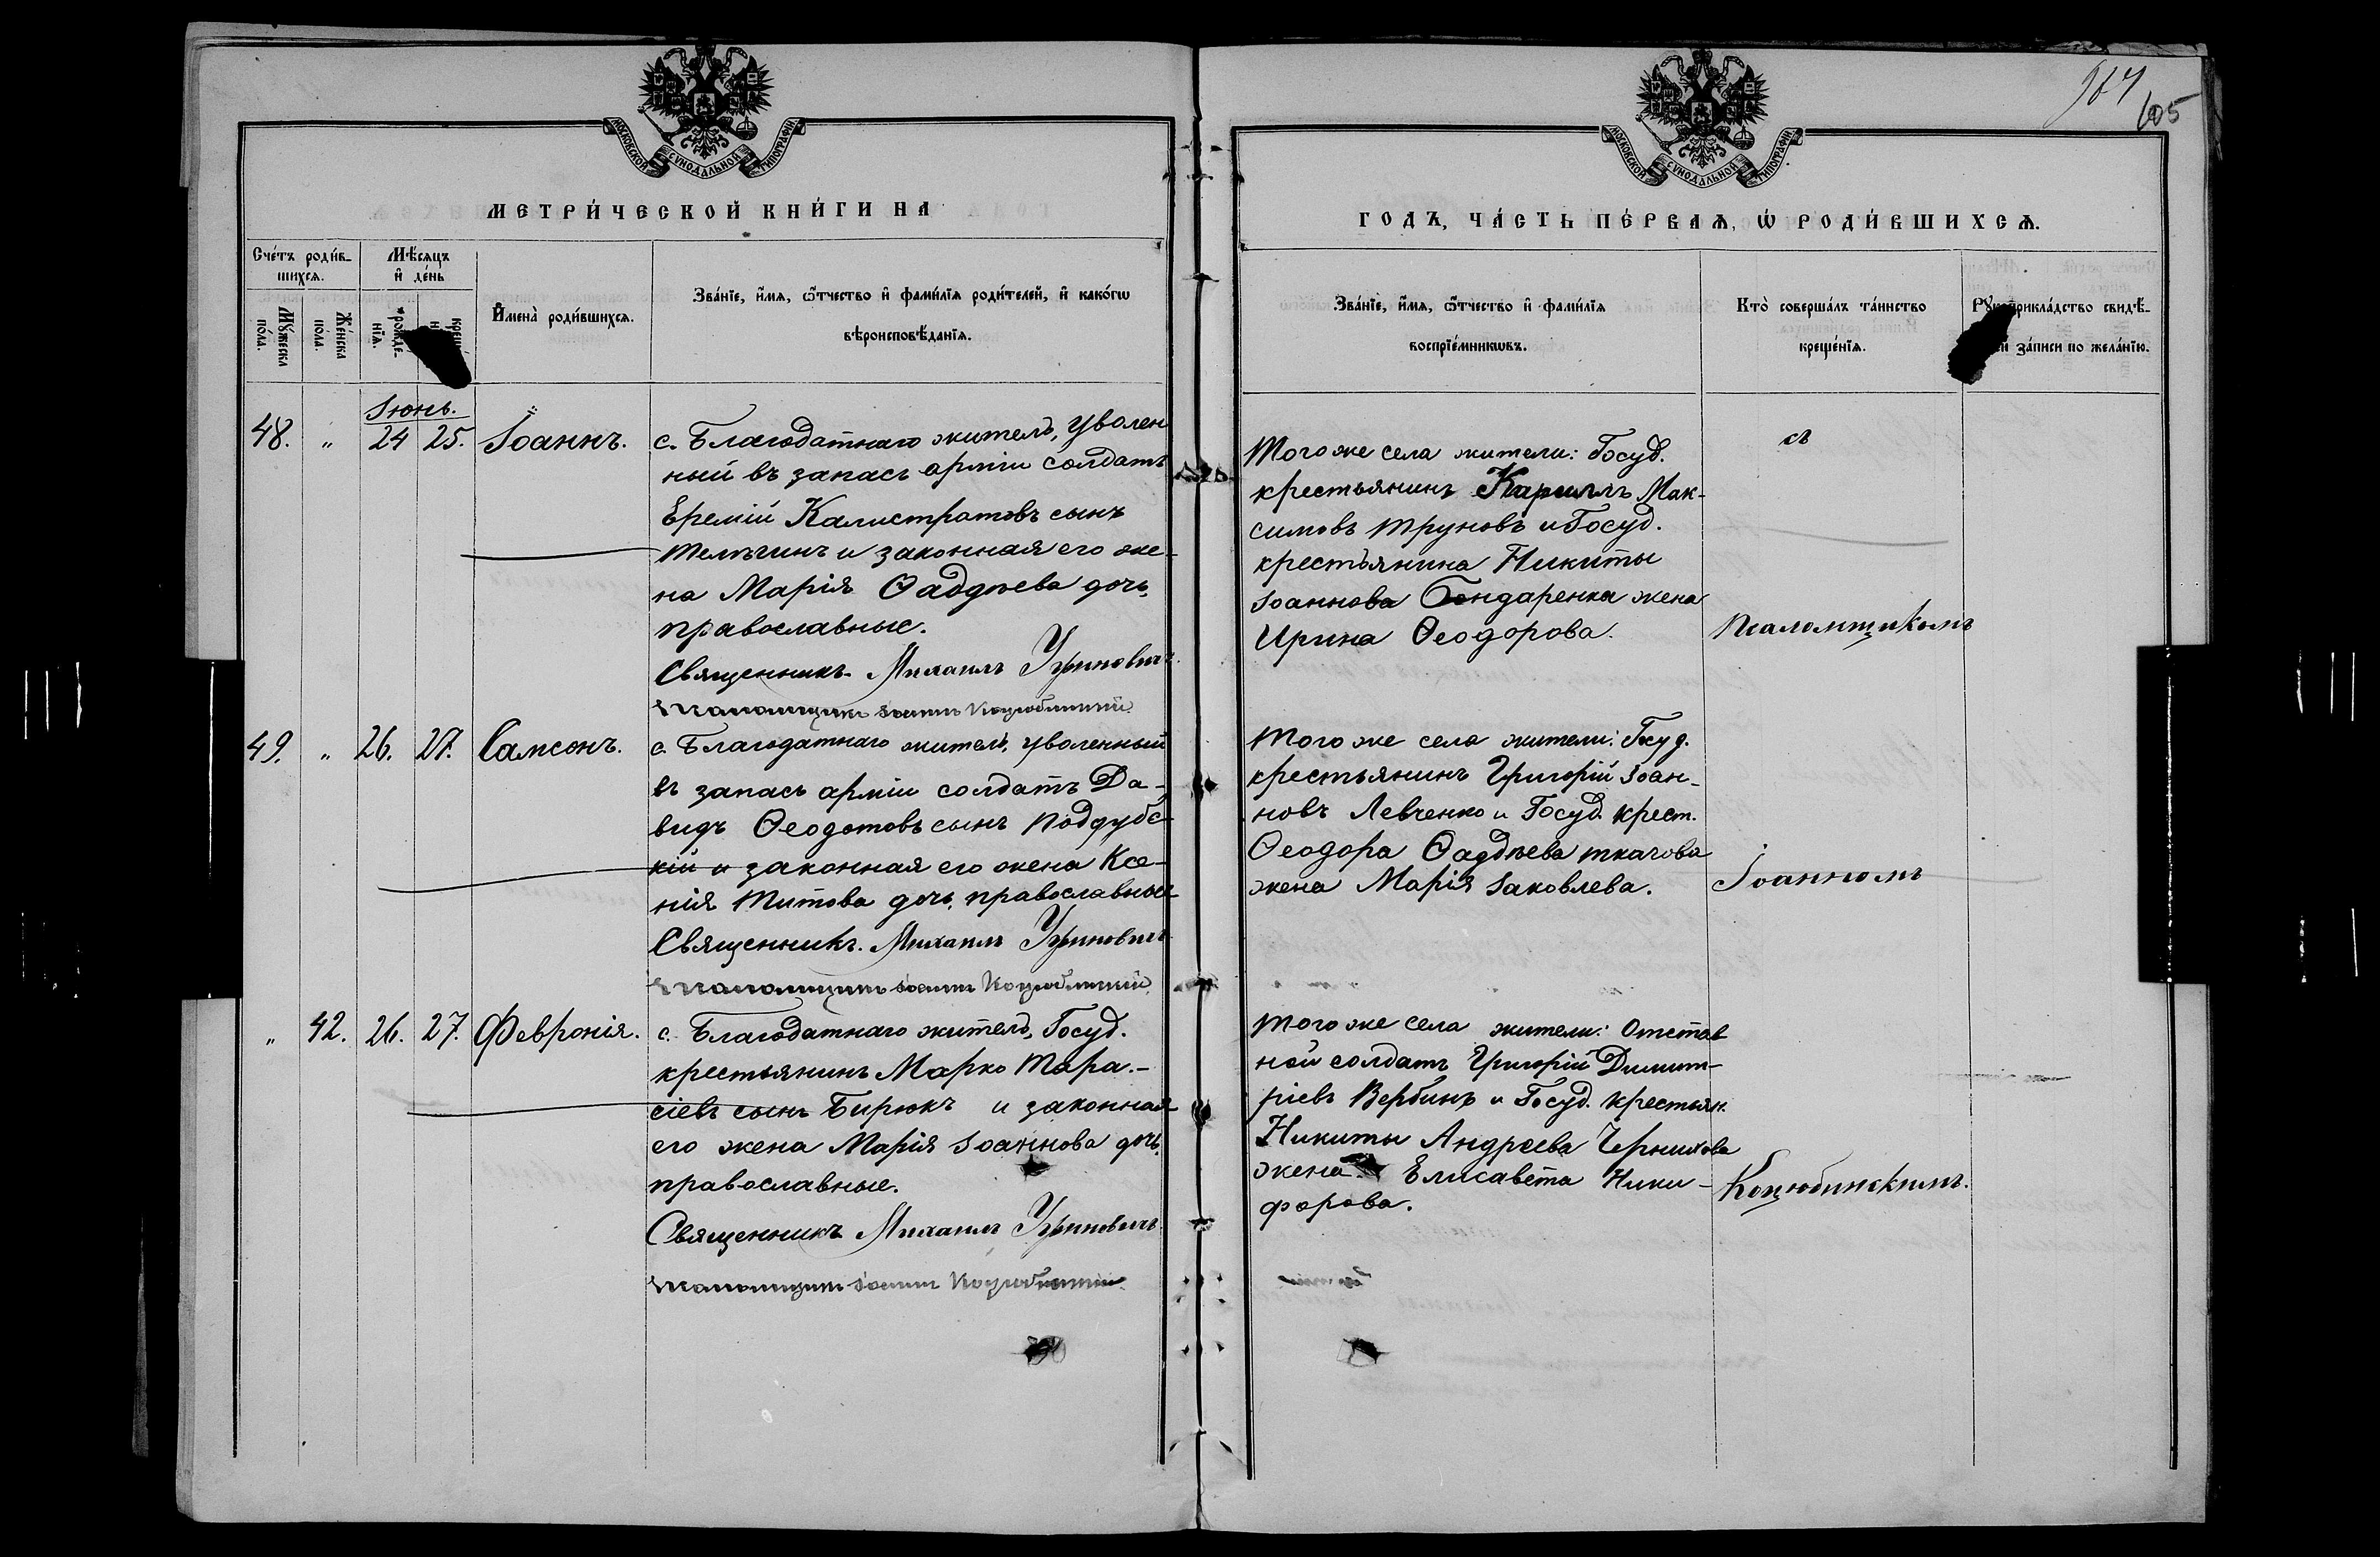 МОСКОВСКОЙ СѴНОДАЛЬНОЙ ТИПОГРАФІИ
МЕТРИ́ЧЕСКОЙ КНИ́ГИ НА
Сче́тъ роди́в-
шихсѧ.
Мꙋ́жеска
по́ла.
Же́нска
по́ла.
Мѣ́сѧцъ
и҆ де́нь
рожде-
нїѧ.
И҆мена̀ роди́вшихсѧ.
Зва́нїе, и҆́мѧ, ѻ҆́тчество и҆ фами́лїѧ роди́телей, и҆ како́гѡ
вѣроисповѣ́данїѧ.
Іюнь.
48. " 24 25. Іоаннъ.
с. Благодатнаго житель, уволен
ный въ запасъ арміи солдатъ
Еремій Калистратовъ сынъ
Телѣгинъ и законная его же-
на Марія Ѳаддѣева дочь,
православные.
Священникъ Михаилъ
Псаломщикъ Іоаннъ Коцюбинскій
49. " 26. 27. Самсонъ.
с. Благодатнаго житель, уволенный
въ запасъ арміи солдатъ Да-
видъ Ѳеодотовъ сынъ Поддубс-
кій и законная его жена Ксе-
нія Титова дочь, православные
Священникъ. Михаилъ
Псаломщикъ Іоаннъ Коцюбинскій
" 42. 26. 27. Февронія.
с. Благодатнаго житель, Госуд.
крестьянинъ Марко Тара.-
сіевъ сынъ Бирюкъ и законная
его жена Марія Іоаннова дочь,
православные.
Священникъ Михаилъ
Псаломщикъ Іоаннъ Коцюбинскій
605
МОСКОВСКОЙ СѴНОДАЛЬНОЙ ТИПОГРАФІИ
ГОДЪ, ЧА́СТЬ ПЕ́РВАѦ, Ѡ҆ РОДИ́ВШИХСѦ.
Зва́нїе, и҆́мѧ, ѻ҆́тчество и҆ фами́лїѧ
воспрїе́мникѡвъ.
Кто̀ соверша́лъ та́инство
креще́нїѧ.
Рꙋкоприкла́дство свидѣ́-
за́писи по жела́нїю.
Того же села жители: Госуд.
крестьянинъ Кариллъ Мак-
симовъ Труновъ и Госуд.
крестьянина Никиты
Іоаннова Бондаренка жена
Ирина Ѳеодорова.
съ
Псаломщикомъ
Того же села жители: Госуд.
крестьянинъ Григорій Іоан-
новъ Левченко и Госуд. крест.
Ѳеодора Ѳаддѣева Ткачова
жена Марія Іаковлева.
Іоанномъ
Того же села жители: Отстав
ной солдатъ Григорій Димит-
ріевъ Вербинъ и Госуд. крестьян.
Никиты Андреева Черникова
жена Елисавета Ники-
форова.
Коцюбинскимъ.